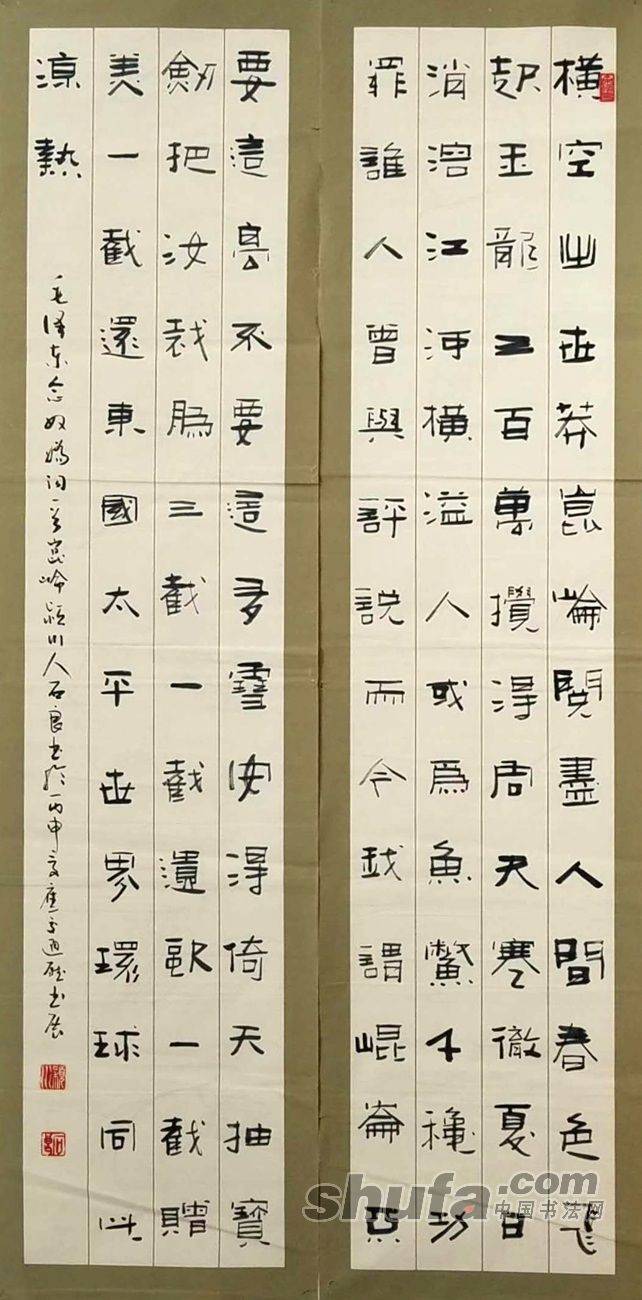 橫空出世莽崑崘閱盡人間春色飛
起玉龍三百萬攪得周天寒徹夏日
消溶江河橫溢人或爲魚鱉千穐功
罪誰人曾與評說而今我謂崐崙
要這高不要這多雪安得倚天抽寶
劍把汝裁爲三截一截遺歐一截贈
美一截還東國太平世界環球同此
涼熱
毛泽东念奴嬌詞一首崑崘潁川人石良書於丙申夏應書展
shufa.com
中国书法网